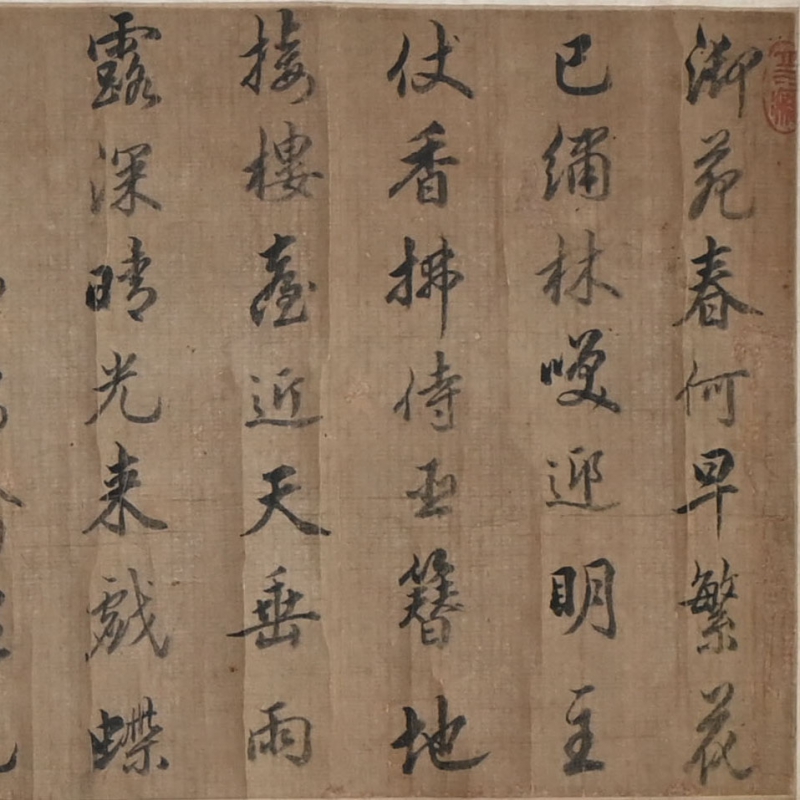 御苑春何早繁花
已繡林唉迎明主
仗香拂侍臣簪地
接樓臺近天垂雨
露深晴光来戲蝶